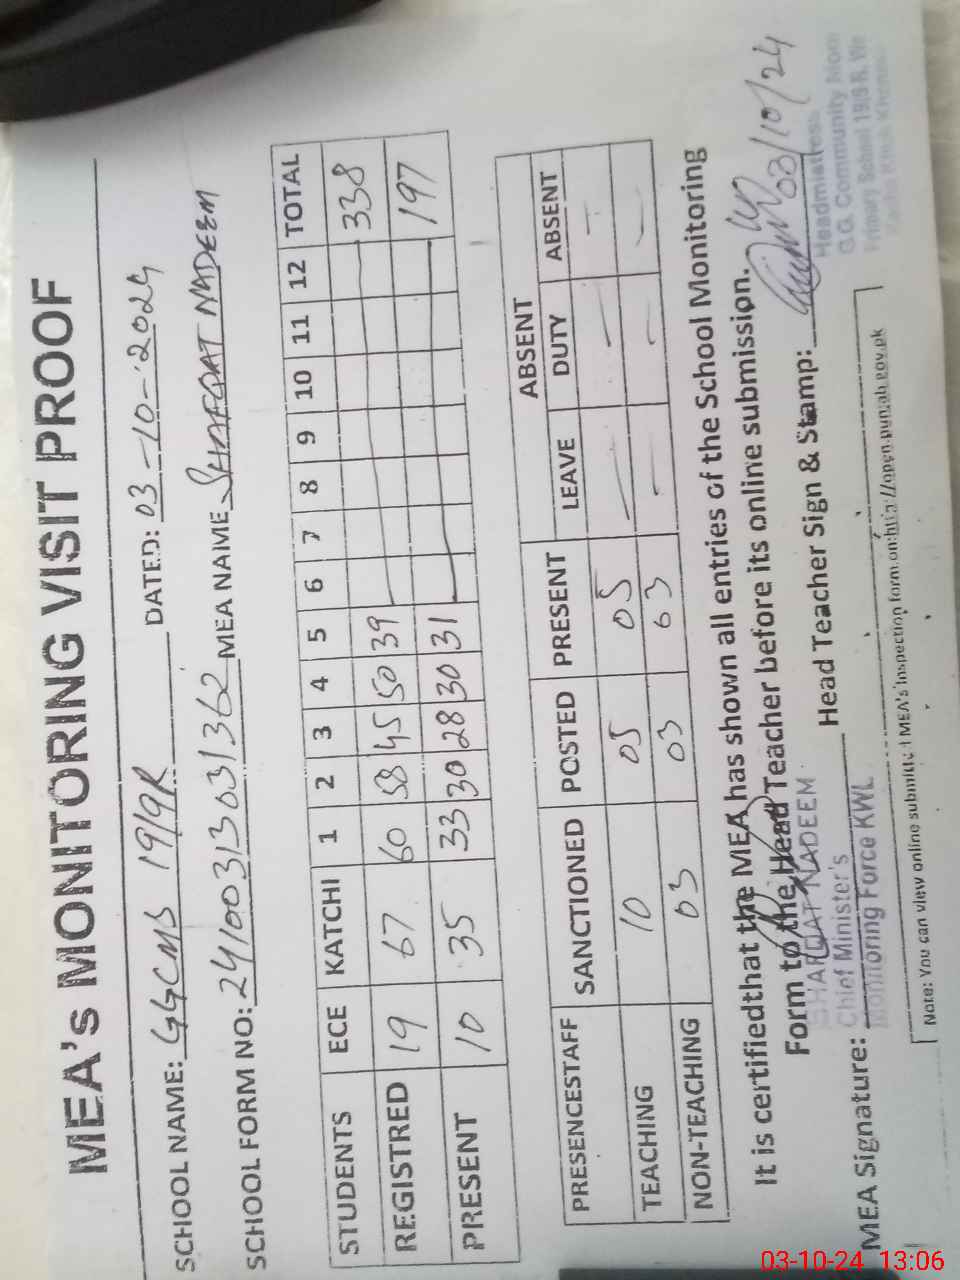 MEA's MONITORING VISIT PROOF
SCHOOL NAME: GGCMS 19/9R DATED: 03-10-2024
SCHOOL FORM NO: 24100313031362 MEA NAME SHAFQAT NADEEM
STUDENTS ECE KATCHI 1 2 3 4 5 6 7 8 9 10 11 12 TOTAL
REGISTRED 19 67 60 58 45 50 39 338
PRESENT 10 35 33 30 28 30 31 197
ABSENT
PRESENCESTAFF SANCTIONED POSTED PRESENT LEAVE DUTY ABSENT
TEACHING 10 05 05 — — —
NON-TEACHING 03 03 03 — — —
It is certifiedthat the MEA has shown all entries of the School Monitoring
Form to the Head Teacher before its online submission.
SHAFQAT NADEEM
Chief Minister's
Monitoring Force KWL
MEA Signature: Head Teacher Sign & Stamp: 03/10/24
Headmistress
G.G. Community Mom
Primary School 19/9-R
Note: You can view online submitted MEA's Inspection form on:http://open.punjab.gov.pk
03-10-24 13:06